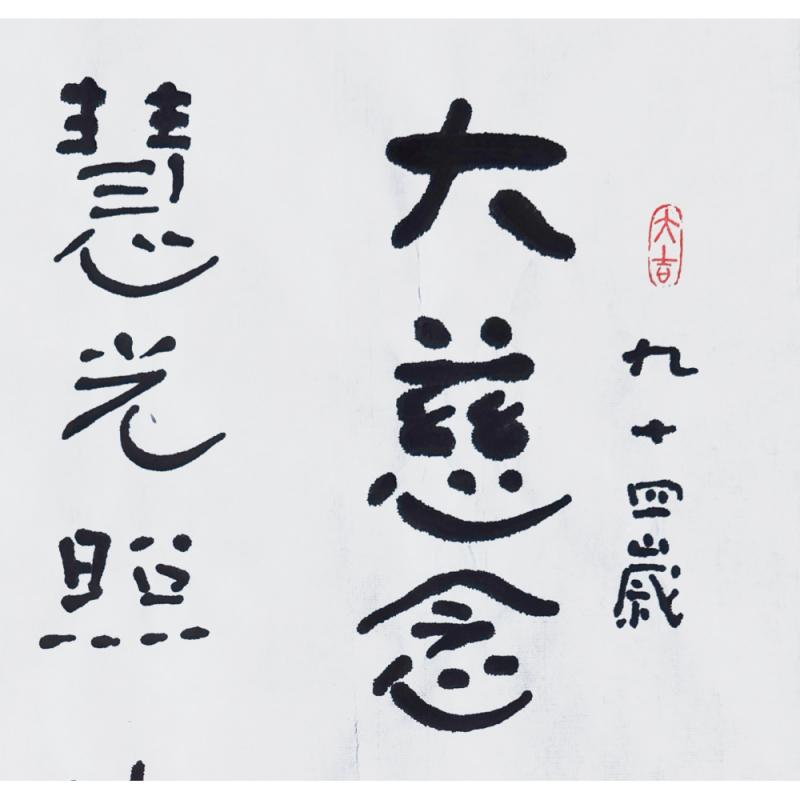 大吉
九十四歲
大慈念
慧光照